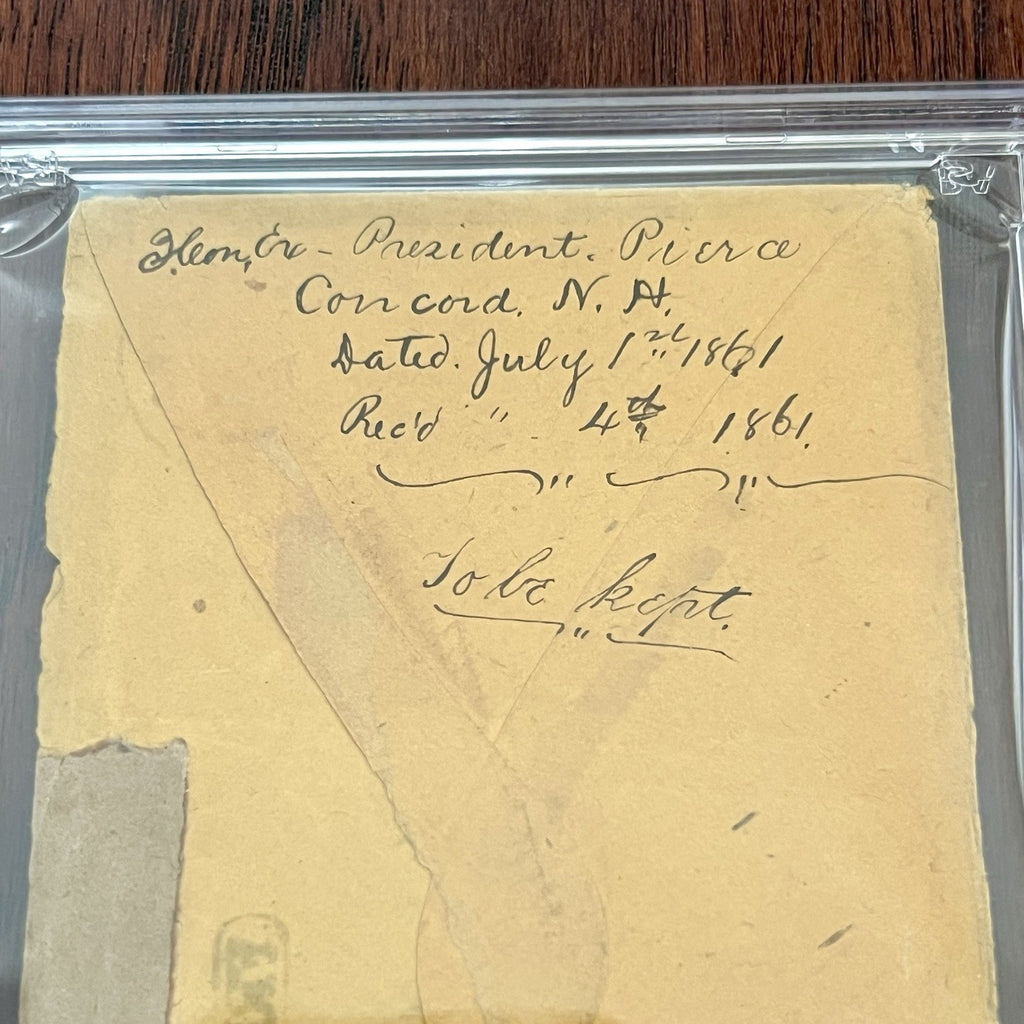 Hon, Ex - President. Pierce
Concord. N. H.
Dated. July 1st 1861
Rec'd " 4th 1861.
To be kept.